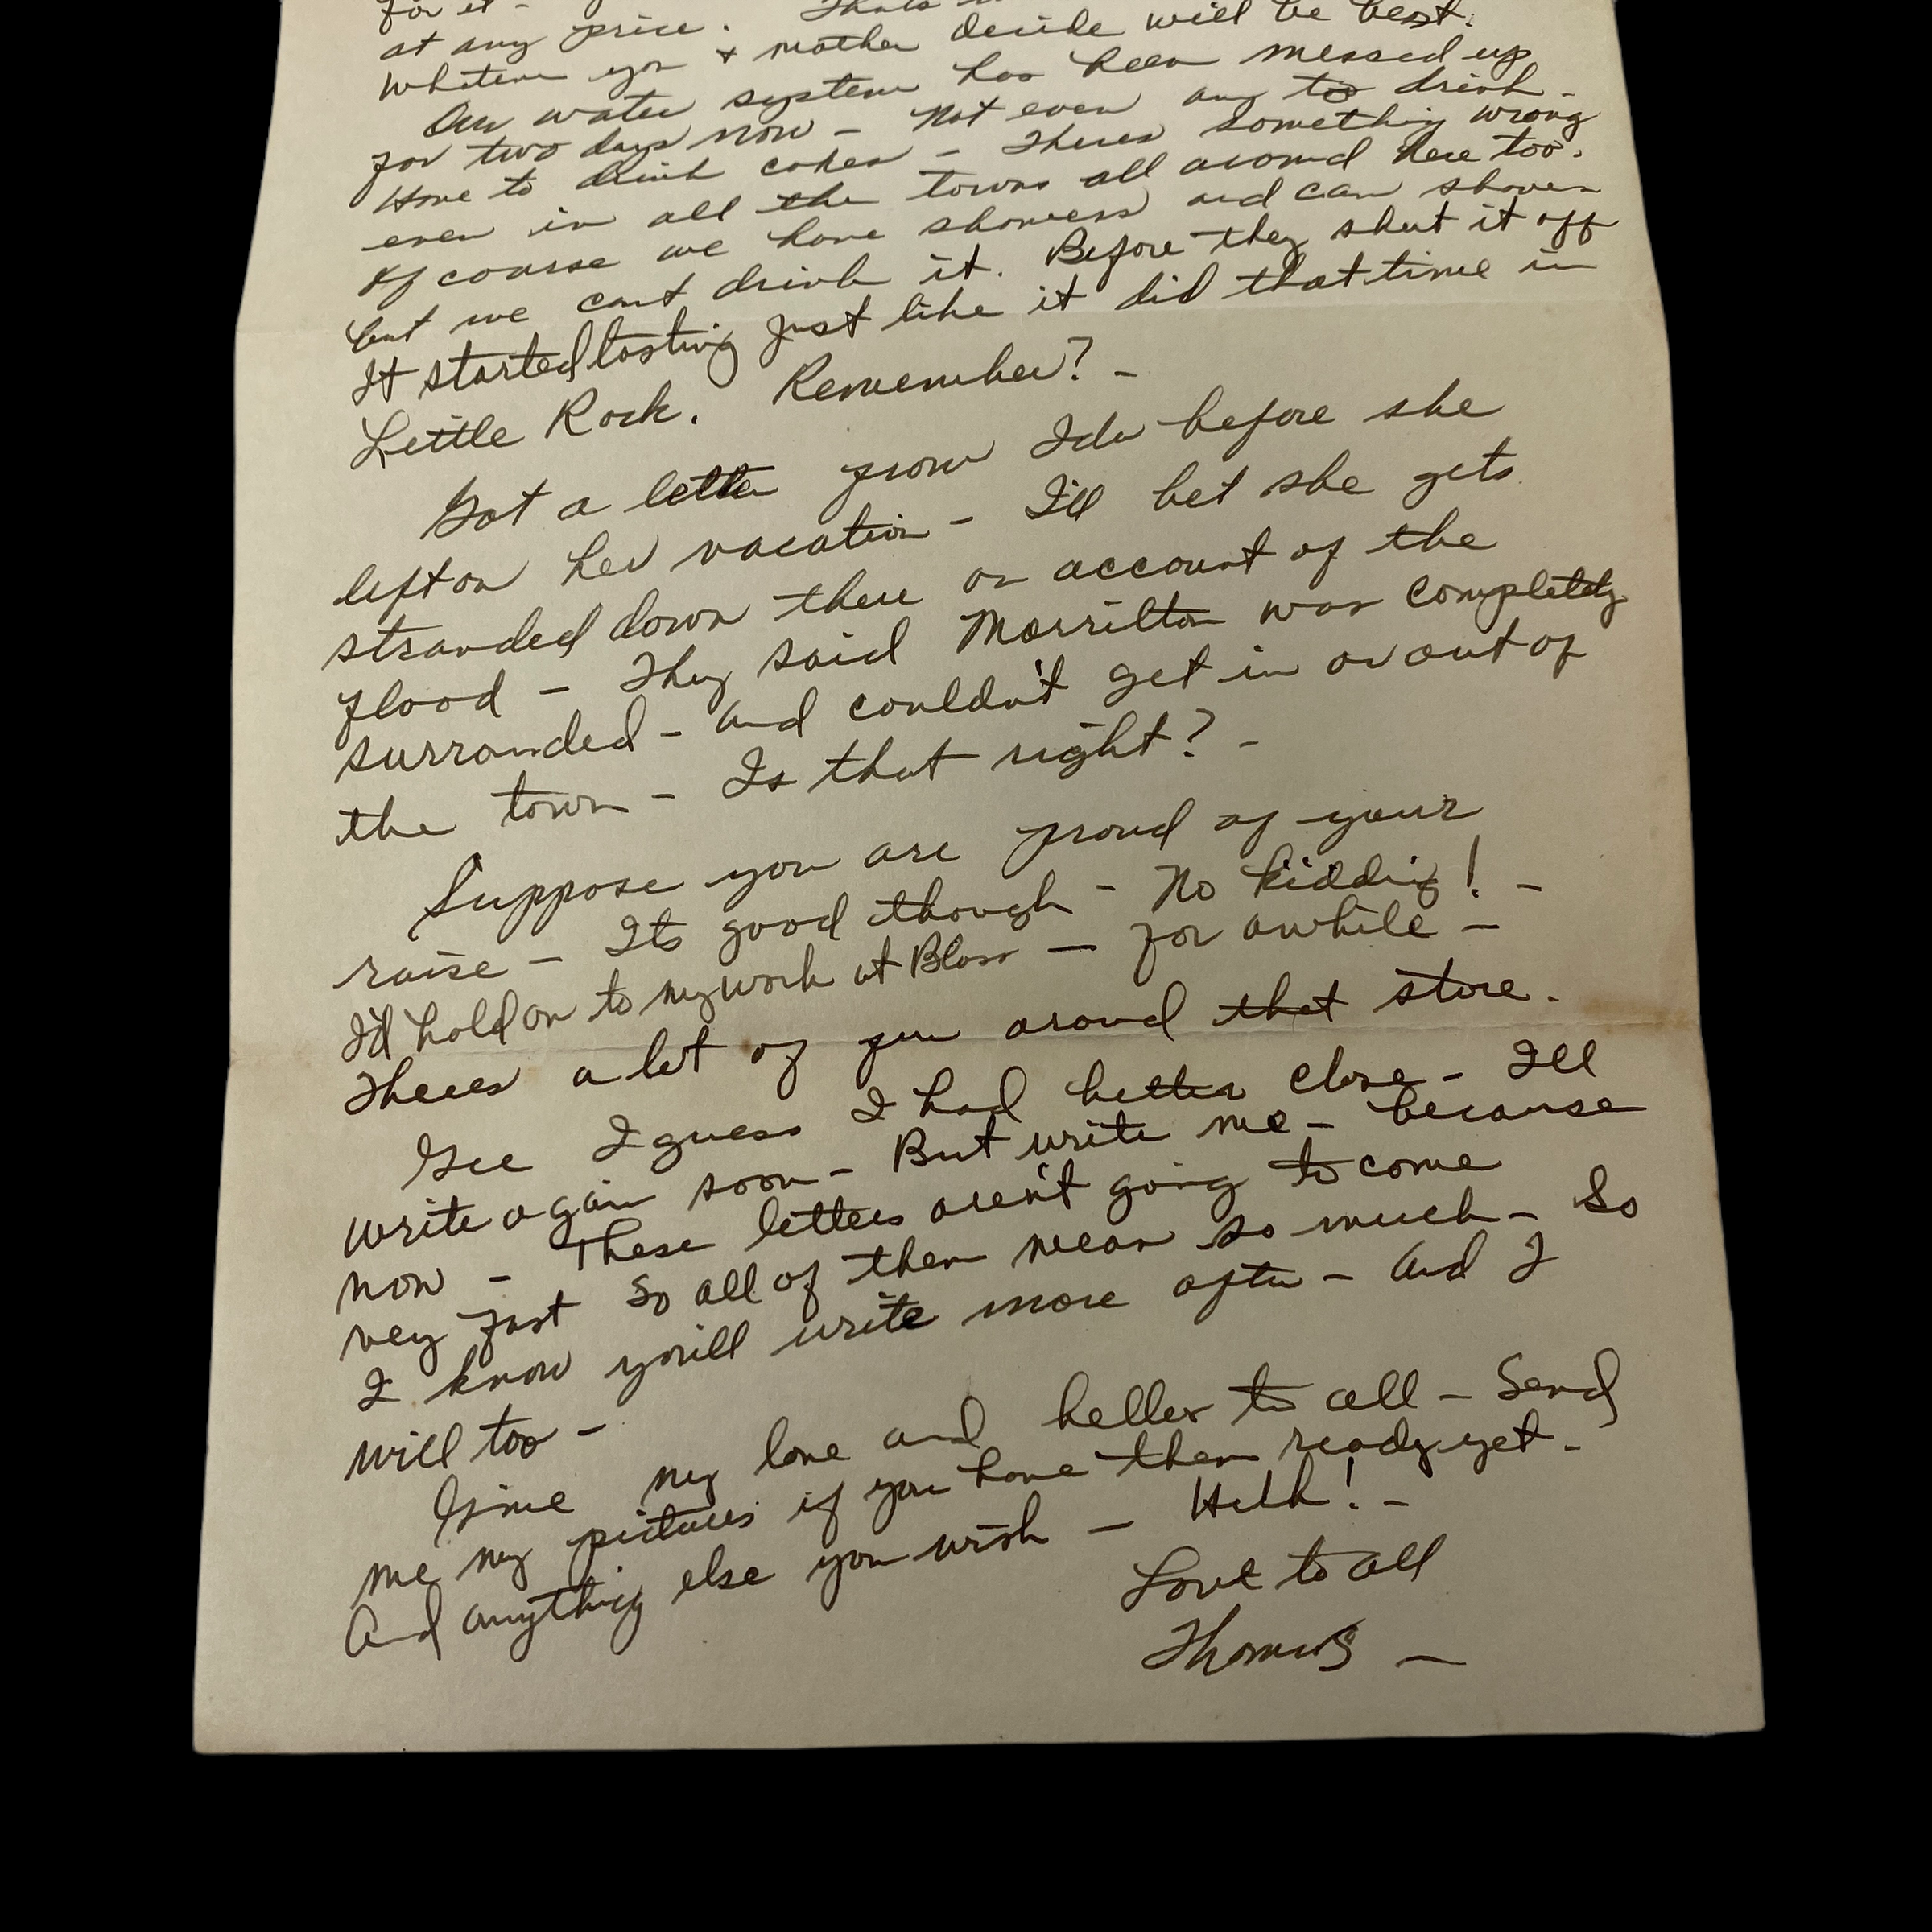 for it -
at any price. Thats
Whatever you & mother decide will be best.
Our water system has been messed up
for two days now - Not even any to drink -
Have to drink cokes - Theres something wrong
even in all the towns all around here too.
Of course we have showers and can shower
but we cant drink it. Before they shut it off
It started tasting just like it did that time in
Little Rock. Remember? -
Got a letter from Ida before she
left on her vacation - I'll bet she gets
stranded down there on account of the
flood - They said Morrilton was completely
surrounded - and couldn't get in or out of
the town - Is that right? -
Suppose you are proud of your
raise - Its good though - No kidding! -
I'd hold on to my work at Bloss - for awhile -
Theres a lot of you around that store.
Gee I guess I had better close - Ill
write again soon - But write me - because
now - These letters aren't going to come
very fast so all of them mean so much - So
I know you'll write more often - And I
will too -
Give my love and hellos to all - Send
me my pictures if you have them ready yet -
And anything else you wish - Huh! -
Love to all
Thomas -